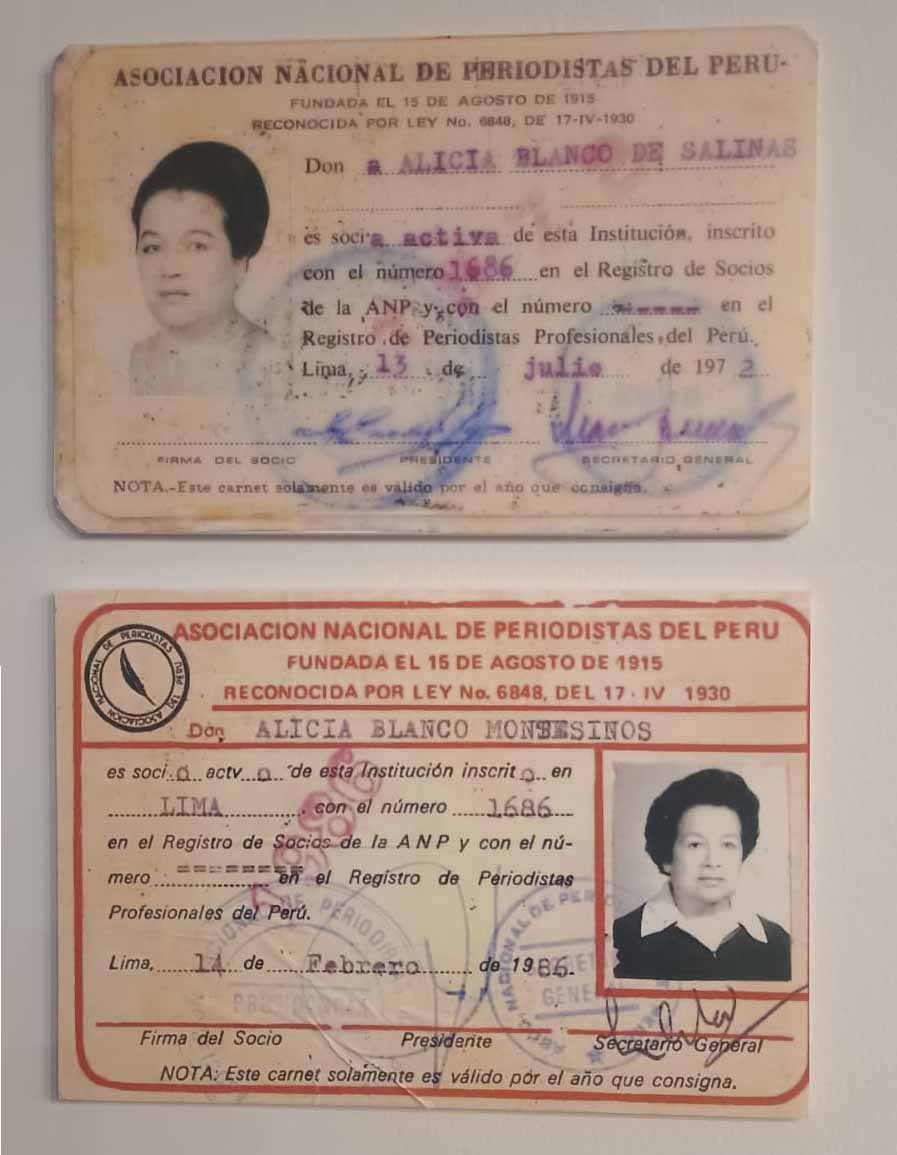 ASOCIACION NACIONAL DE PERIODISTAS DEL PERU
FUNDADA EL 15 DE AGOSTO DE 1915
RECONOCIDA POR LEY No. 6848, DE 17-IV-1930
Don a ALICIA BLANCO DE SALINAS
es socia activa de esta Institución, inscrito
con el número 1686 en el Registro de Socios
de la ANP y con el número ------ en el
Registro de Periodistas Profesionales del Perú.
Lima, 13 de julio de 1972
FIRMA DEL SOCIO PRESIDENTE SECRETARIO GENERAL
NOTA.-Este carnet solamente es válido por el año que consigna.
ASOCIACION NACIONAL DE PERIODISTAS DEL PERU
ASOCIACION NACIONAL DE PERIODISTAS DEL PERU
FUNDADA EL 15 DE AGOSTO DE 1915
RECONOCIDA POR LEY No. 6848, DEL 17 · IV 1930
Don ALICIA BLANCO MONTESINOS
es soci.a actv.a de esta Institución inscrit o en
LIMA con el número 1686
en el Registro de Socios de la A N P y con el nú-
mero ======== en el Registro de Periodistas
Profesionales del Perú.
Lima, 14 de Febrero de 1986.
Firma del Socio Presidente Secretario General
NOTA: Este carnet solamente es válido por el año que consigna.